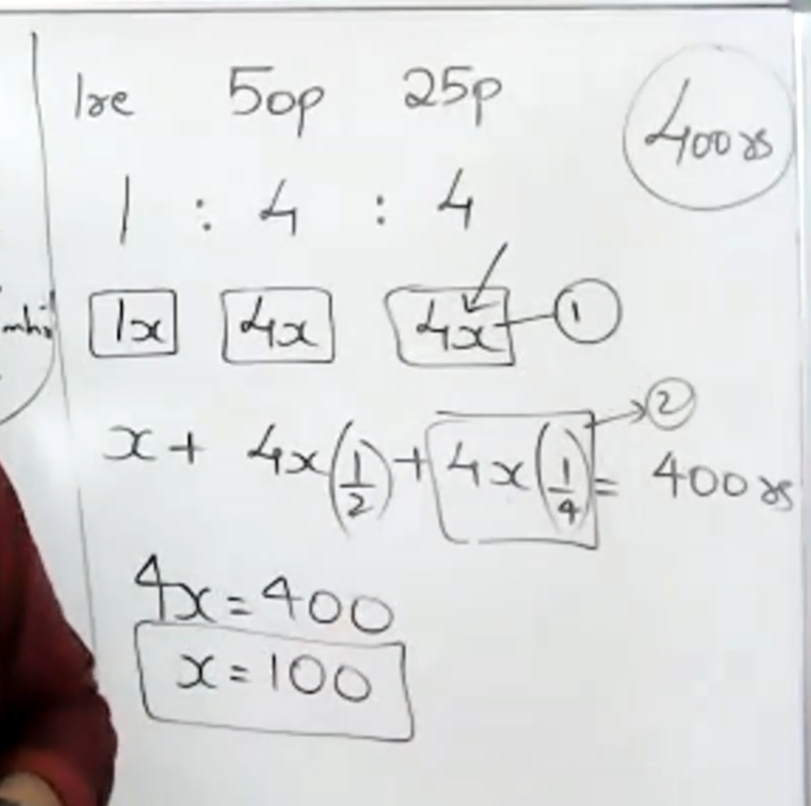 1re 50p 25p
400rs
1 : 4 : 4
1x 4x 4x 1
x + 4x(1/2) + 4x(1/4) = 400rs
2
4x = 400
x = 100